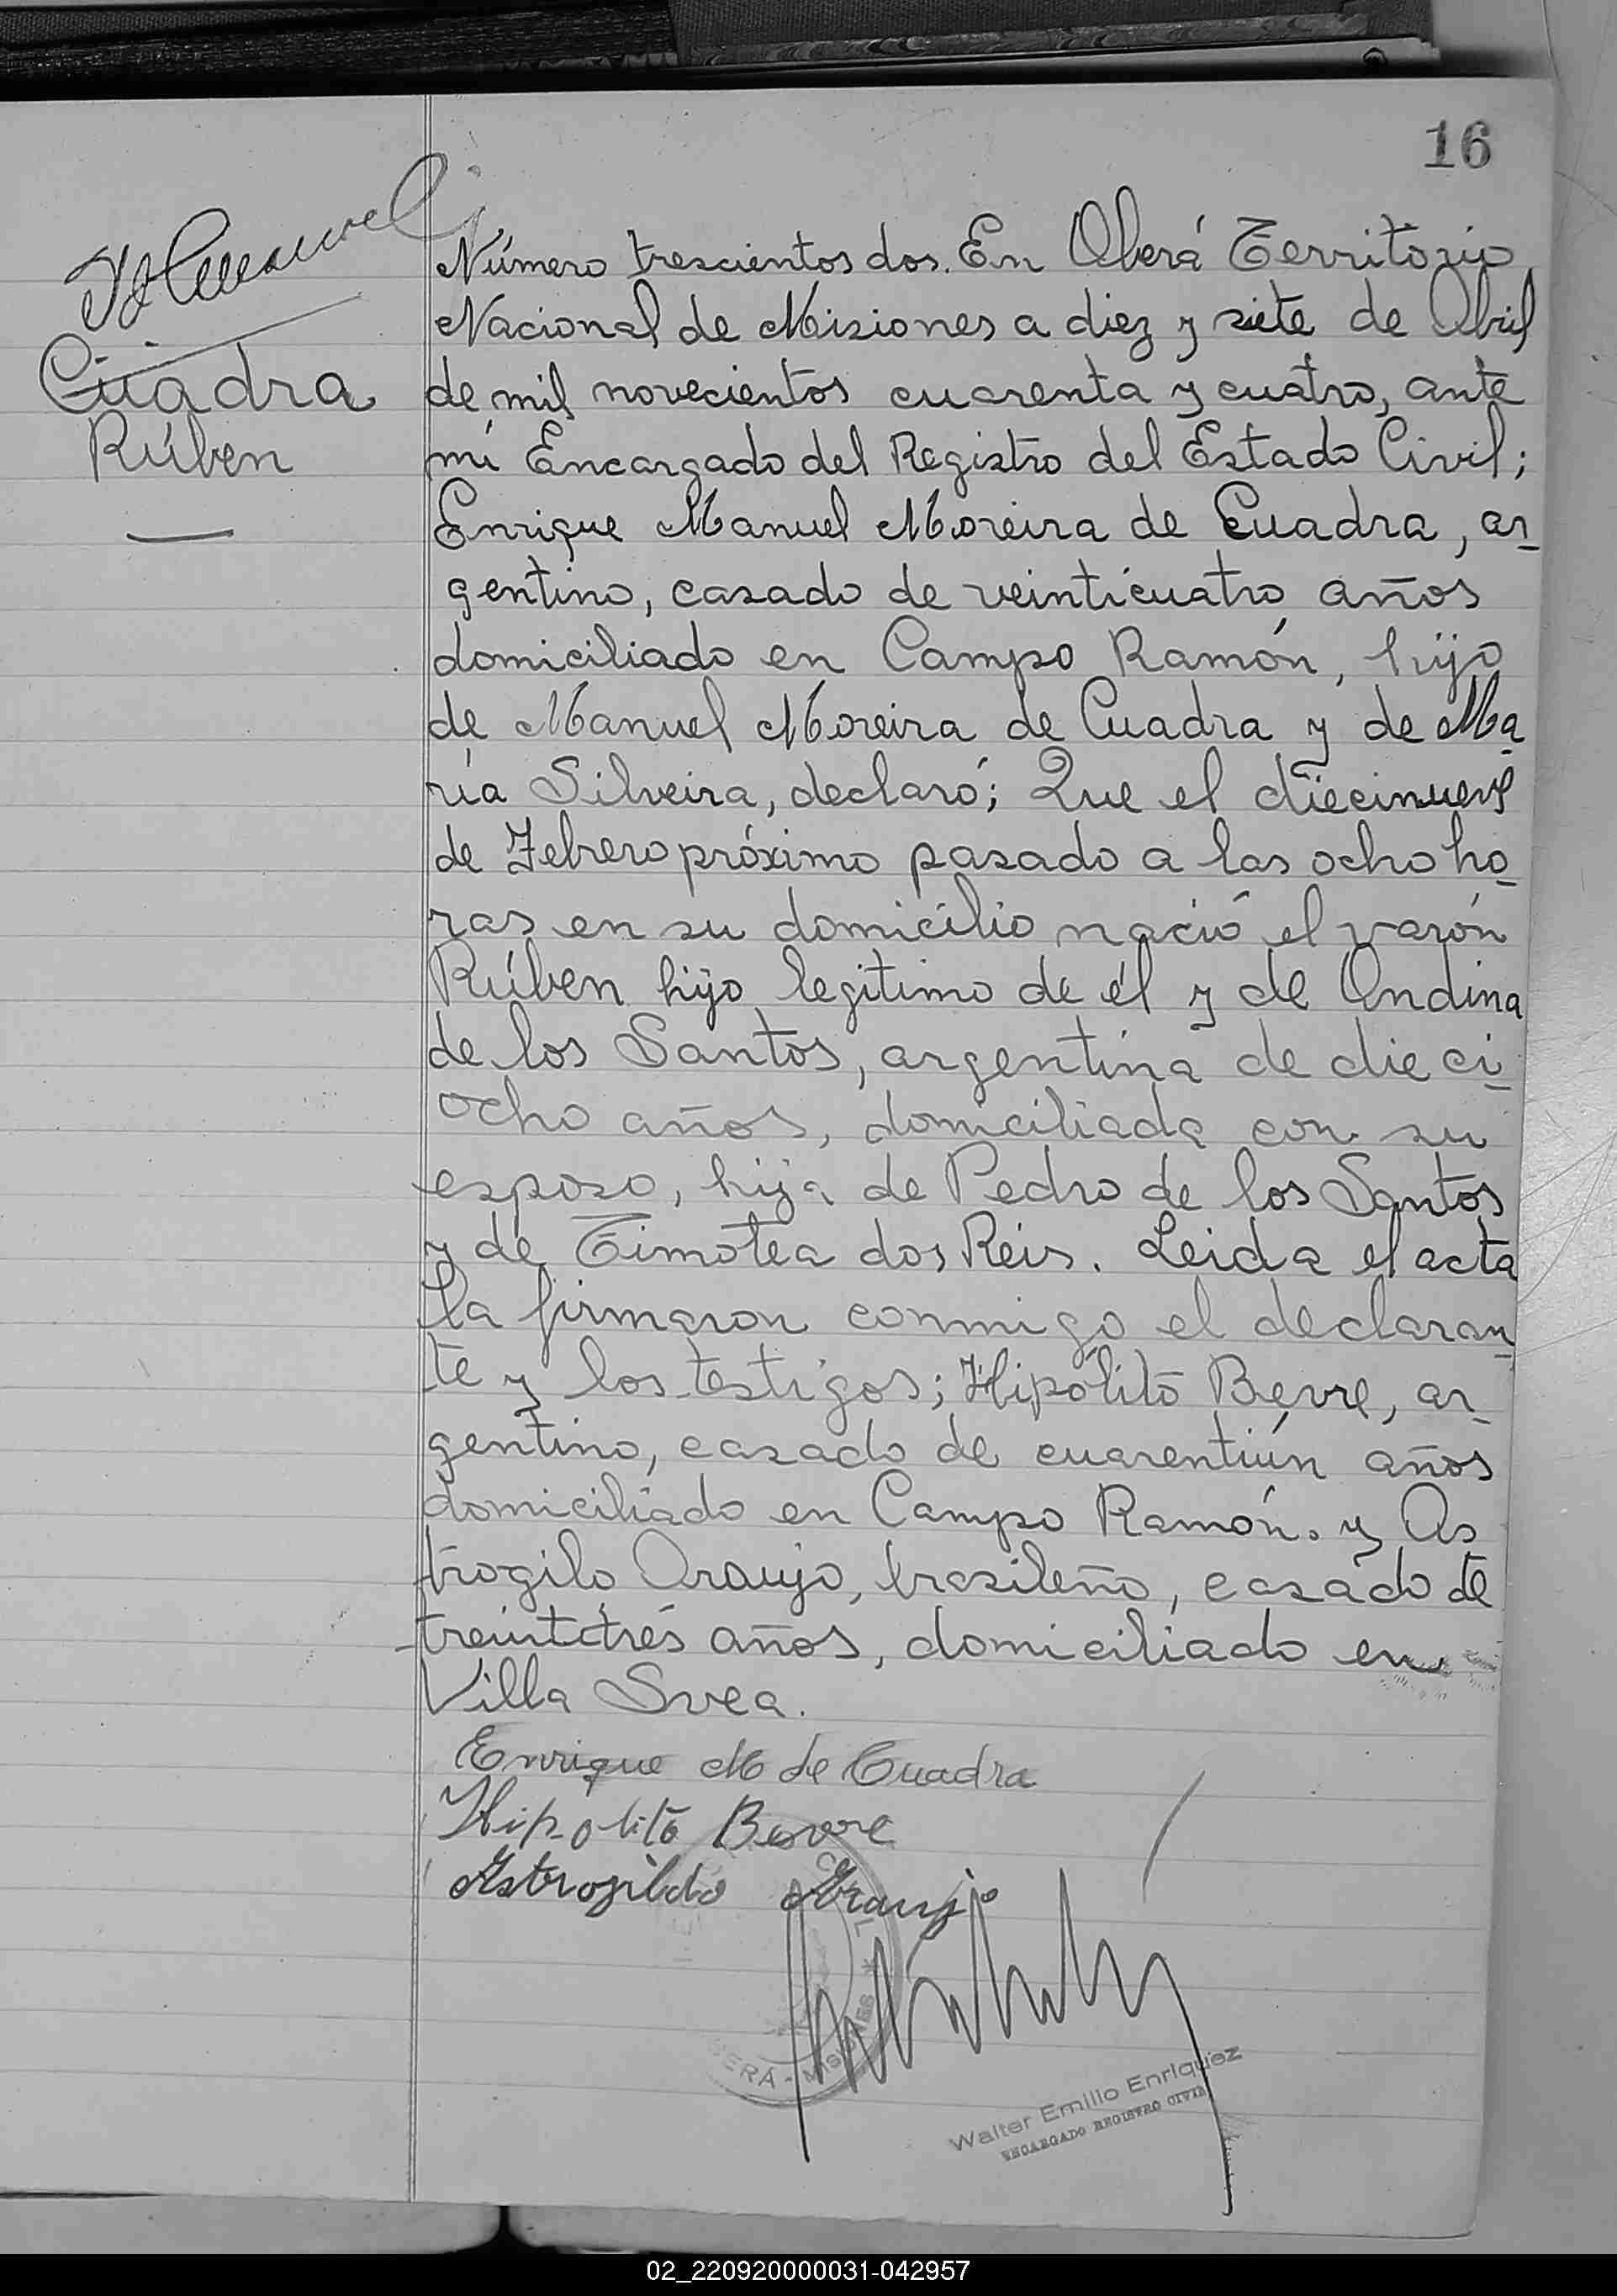 16
Cuadra
Rúben
Número trescientos dos. En Oberá Territorio
Nacional de Misiones a diez y siete de Abril
de mil novecientos cuarenta y cuatro, ante
mí Encargado del Registro del Estado Civil;
Enrique Manuel Moreira de Cuadra, ar_
gentino, casado de veinticuatro años
domiciliado en Campo Ramón, hijo
de Manuel Moreira de Cuadra y de Ma_
ría Silveira, declaró; Que el diecinueve
de Febrero próximo pasado a las ocho ho_
ras en su domicilio nació el varón
Rúben hijo legitimo de él y de Ondina
de los Santos, argentina de dieci_
ocho años, domiciliada con su
esposo, hija de Pedro de los Santos
y de Timotea dos Reis. Leida el acta
la firmaron conmigo el declaran_
te y los testigos; Hipólito Bevre, ar_
gentino, casado de cuarentiún años
domiciliado en Campo Ramón. y As
trogilo Araujo, brasileño, casado de
treintitrés años, domiciliado en
Villa Svea.
Enrique M de Cuadra
Hipolito
Astrogildo Araujo
ERÁ - MISIONES *
Walter Emilio Enriquez
ENCARGADO REGISTRO CIVIL
02_220920000031-042957